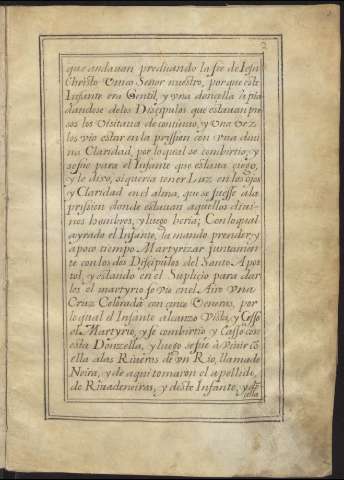 2
que andauan predicando la fee de Iesu
Christo Vnico Señor nuestro, porque este
Infante era Gentil, y vna doncella apia
dandose delos Discipulos que estauan pre
sos los Visitaua de continuo, y vna vez
los vio estar en la prission con vna diui
na Claridad, por lo qual se combirtio; y
se fue para el Infante que estaua ciego,
y le dixo, si queria tener Luz en los ojos
y Claridad en el alma, que se fuesse ala
prission donde estauan aquellos diui
nos hombres, y luego beria; Con lo qual
ayrado el Infante, la mando prender, y
apoco tiempo Martyrizar juntamen
te con los dos Discipulos del Santo Apos
tol, y estando en el Suplicio para dar
les el martyrio se vio en el Aire vna
Cruz Colorada con cinco Veneras, por
lo qual el Infante alcanzo Vista, y Cesso
el Martyrio, y se combirtio y Casso con
esta Donzella, y luego se fue à viuir cō
ella alas Riueras de vn Rio, llamado
Neira, y de aqui tomaron el apellido
de Riuadeneiras, y deste Infante, y